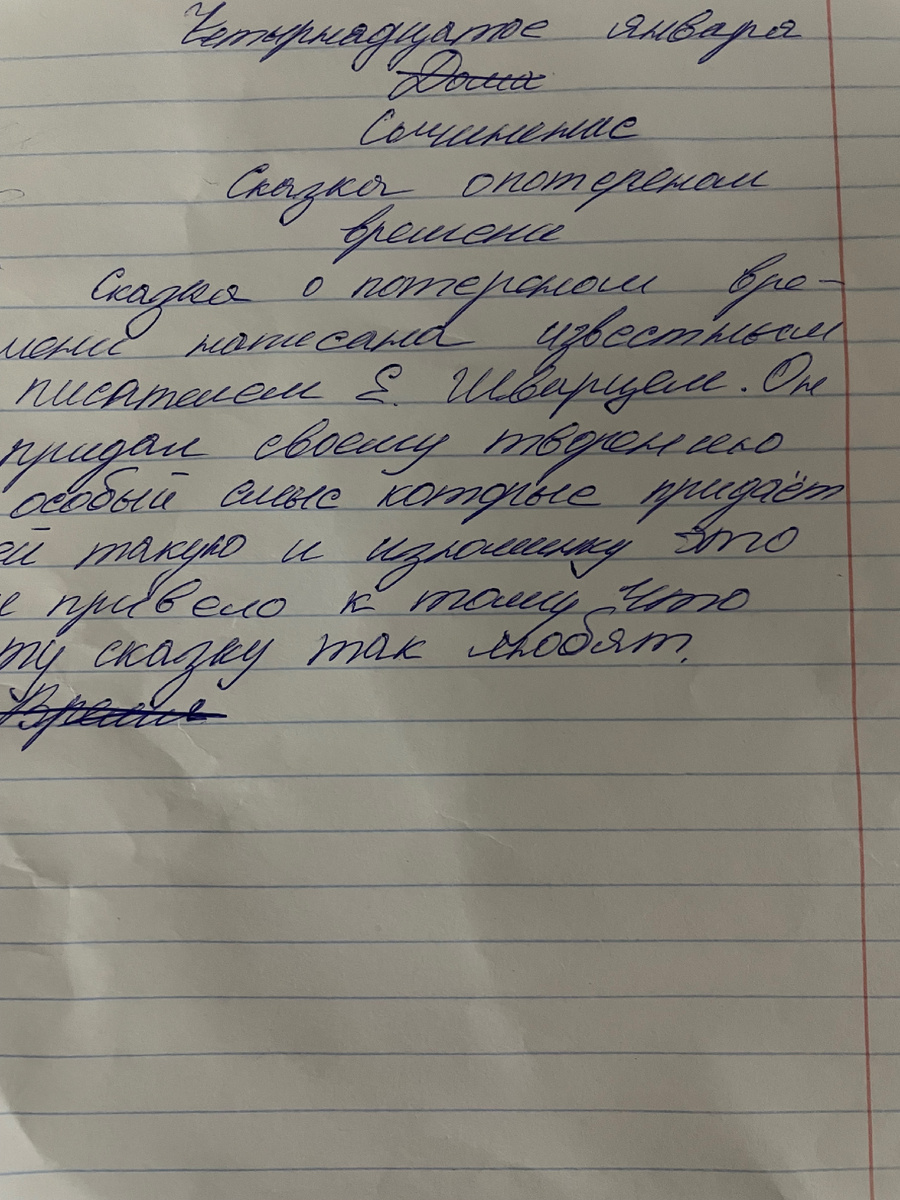 Четырнадцатое января
Дома
Сочинение
Сказка опотереном
времени
Сказка о потереном вре-
мени написана известным
писателем Е. Шварцем. Он
придал своему творению
особый смыс которые придаёт
ей такую и изюминку это
и привело к тому что
ту сказку так любят.
Время